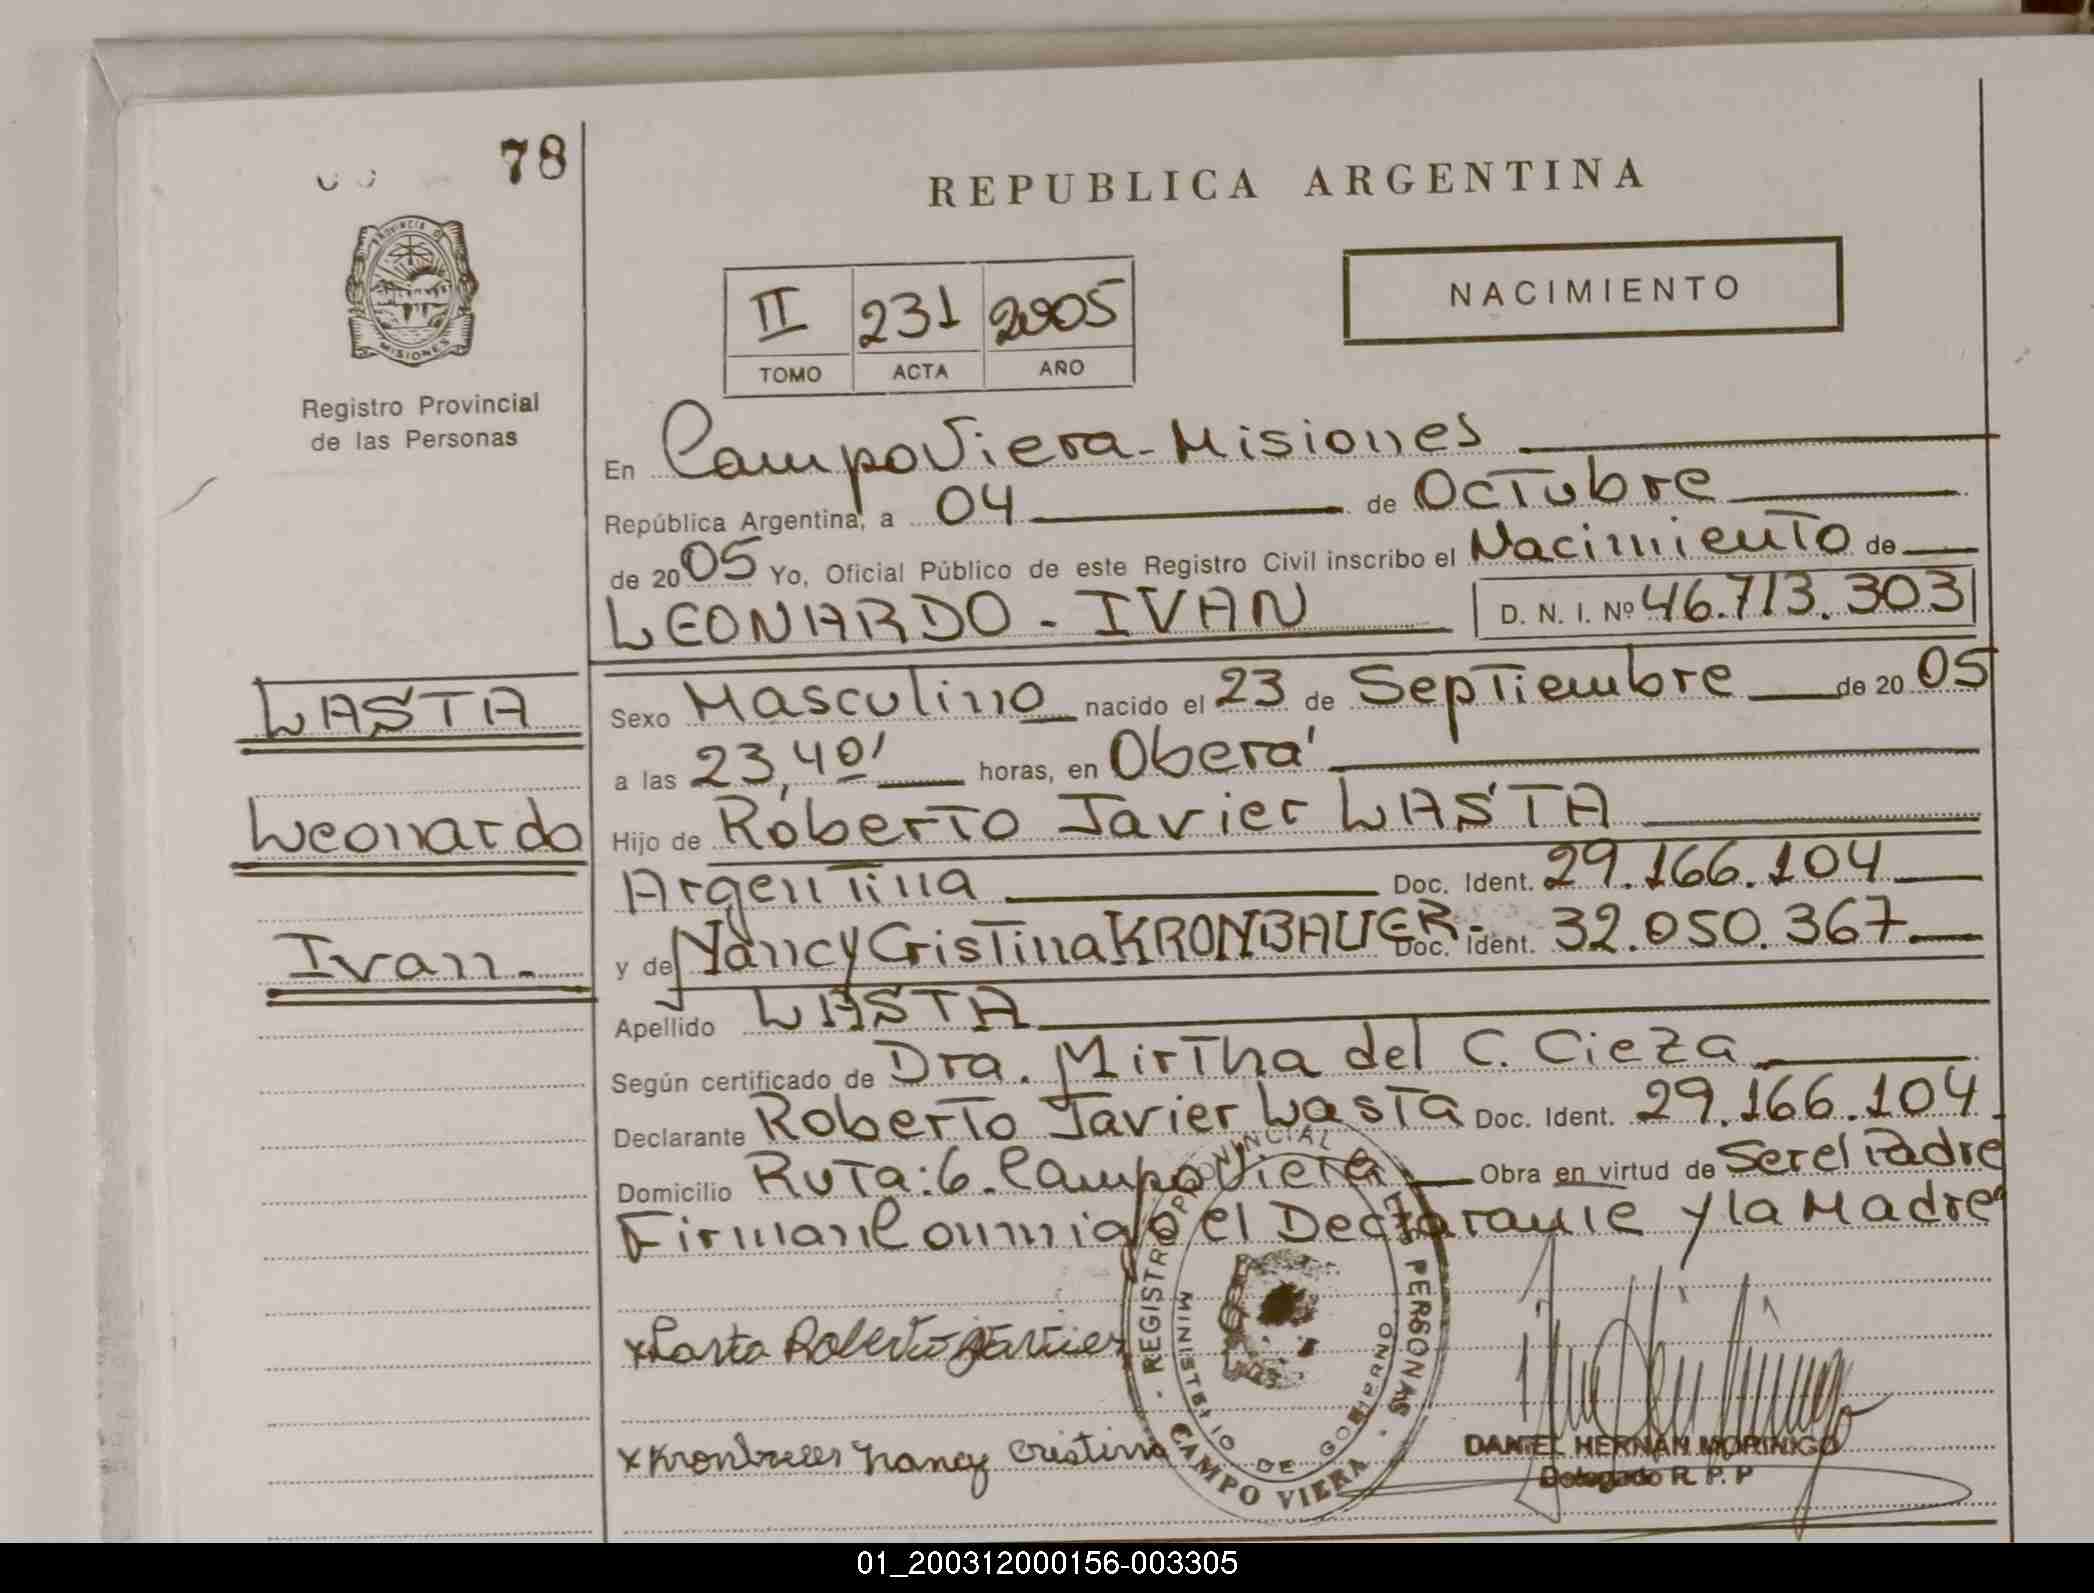 78
PROVINCIA DE
MISIONES
Registro Provincial
de las Personas
REPUBLICA ARGENTINA
II 231 2005
TOMO ACTA AÑO
NACIMIENTO
En Campo Viera - Misiones
República Argentina, a 04 de Octubre
de 2005 Yo, Oficial Público de este Registro Civil inscribo el Nacimiento de
LEONARDO - IVAN D. N. I. Nº 46.713.303
LASTA
Leonardo
Ivan.-
Sexo Masculino nacido el 23 de Septiembre de 2005
a las 23,40' horas, en Oberá
Hijo de Roberto Javier LASTA
Argentina Doc. Ident. 29.166.104
y de Nancy Cristina KRONBAUER- Doc. Ident. 32.050.367
Apellido LASTA
Según certificado de Dra. Mirtha del C. Cieza
Declarante Roberto Javier Lasta Doc. Ident. 29.166.104
Domicilio Ruta: 6. Campo Viera Obra en virtud de Ser el Padre
Firman Conmigo el Declarante y la Madre
x Lasta Roberto Javier
x Kronbauer Nancy Cristina
REGISTRO PROVINCIAL DE LAS PERSONAS
MINISTERIO DE GOBIERNO
CAMPO VIERA
DANIEL HERNAN MORINIGO
Delegado R. P. P
01_200312000156-003305